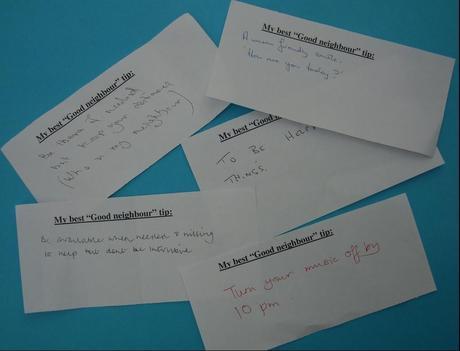 My best "Good neighbour" tip:
A warm friendly smile.
'How are you today?'
My best "Good neighbour" tip:
Be there if needed
but keep your distance
(Who is my neighbour)
My best "Good neighbour"
TO BE
THINGS.
My best "Good neighbour" tip:
Be available when needed & willing
to help but dont be intrusive
My best "Good neighbour" tip:
Turn your music off by
10 pm